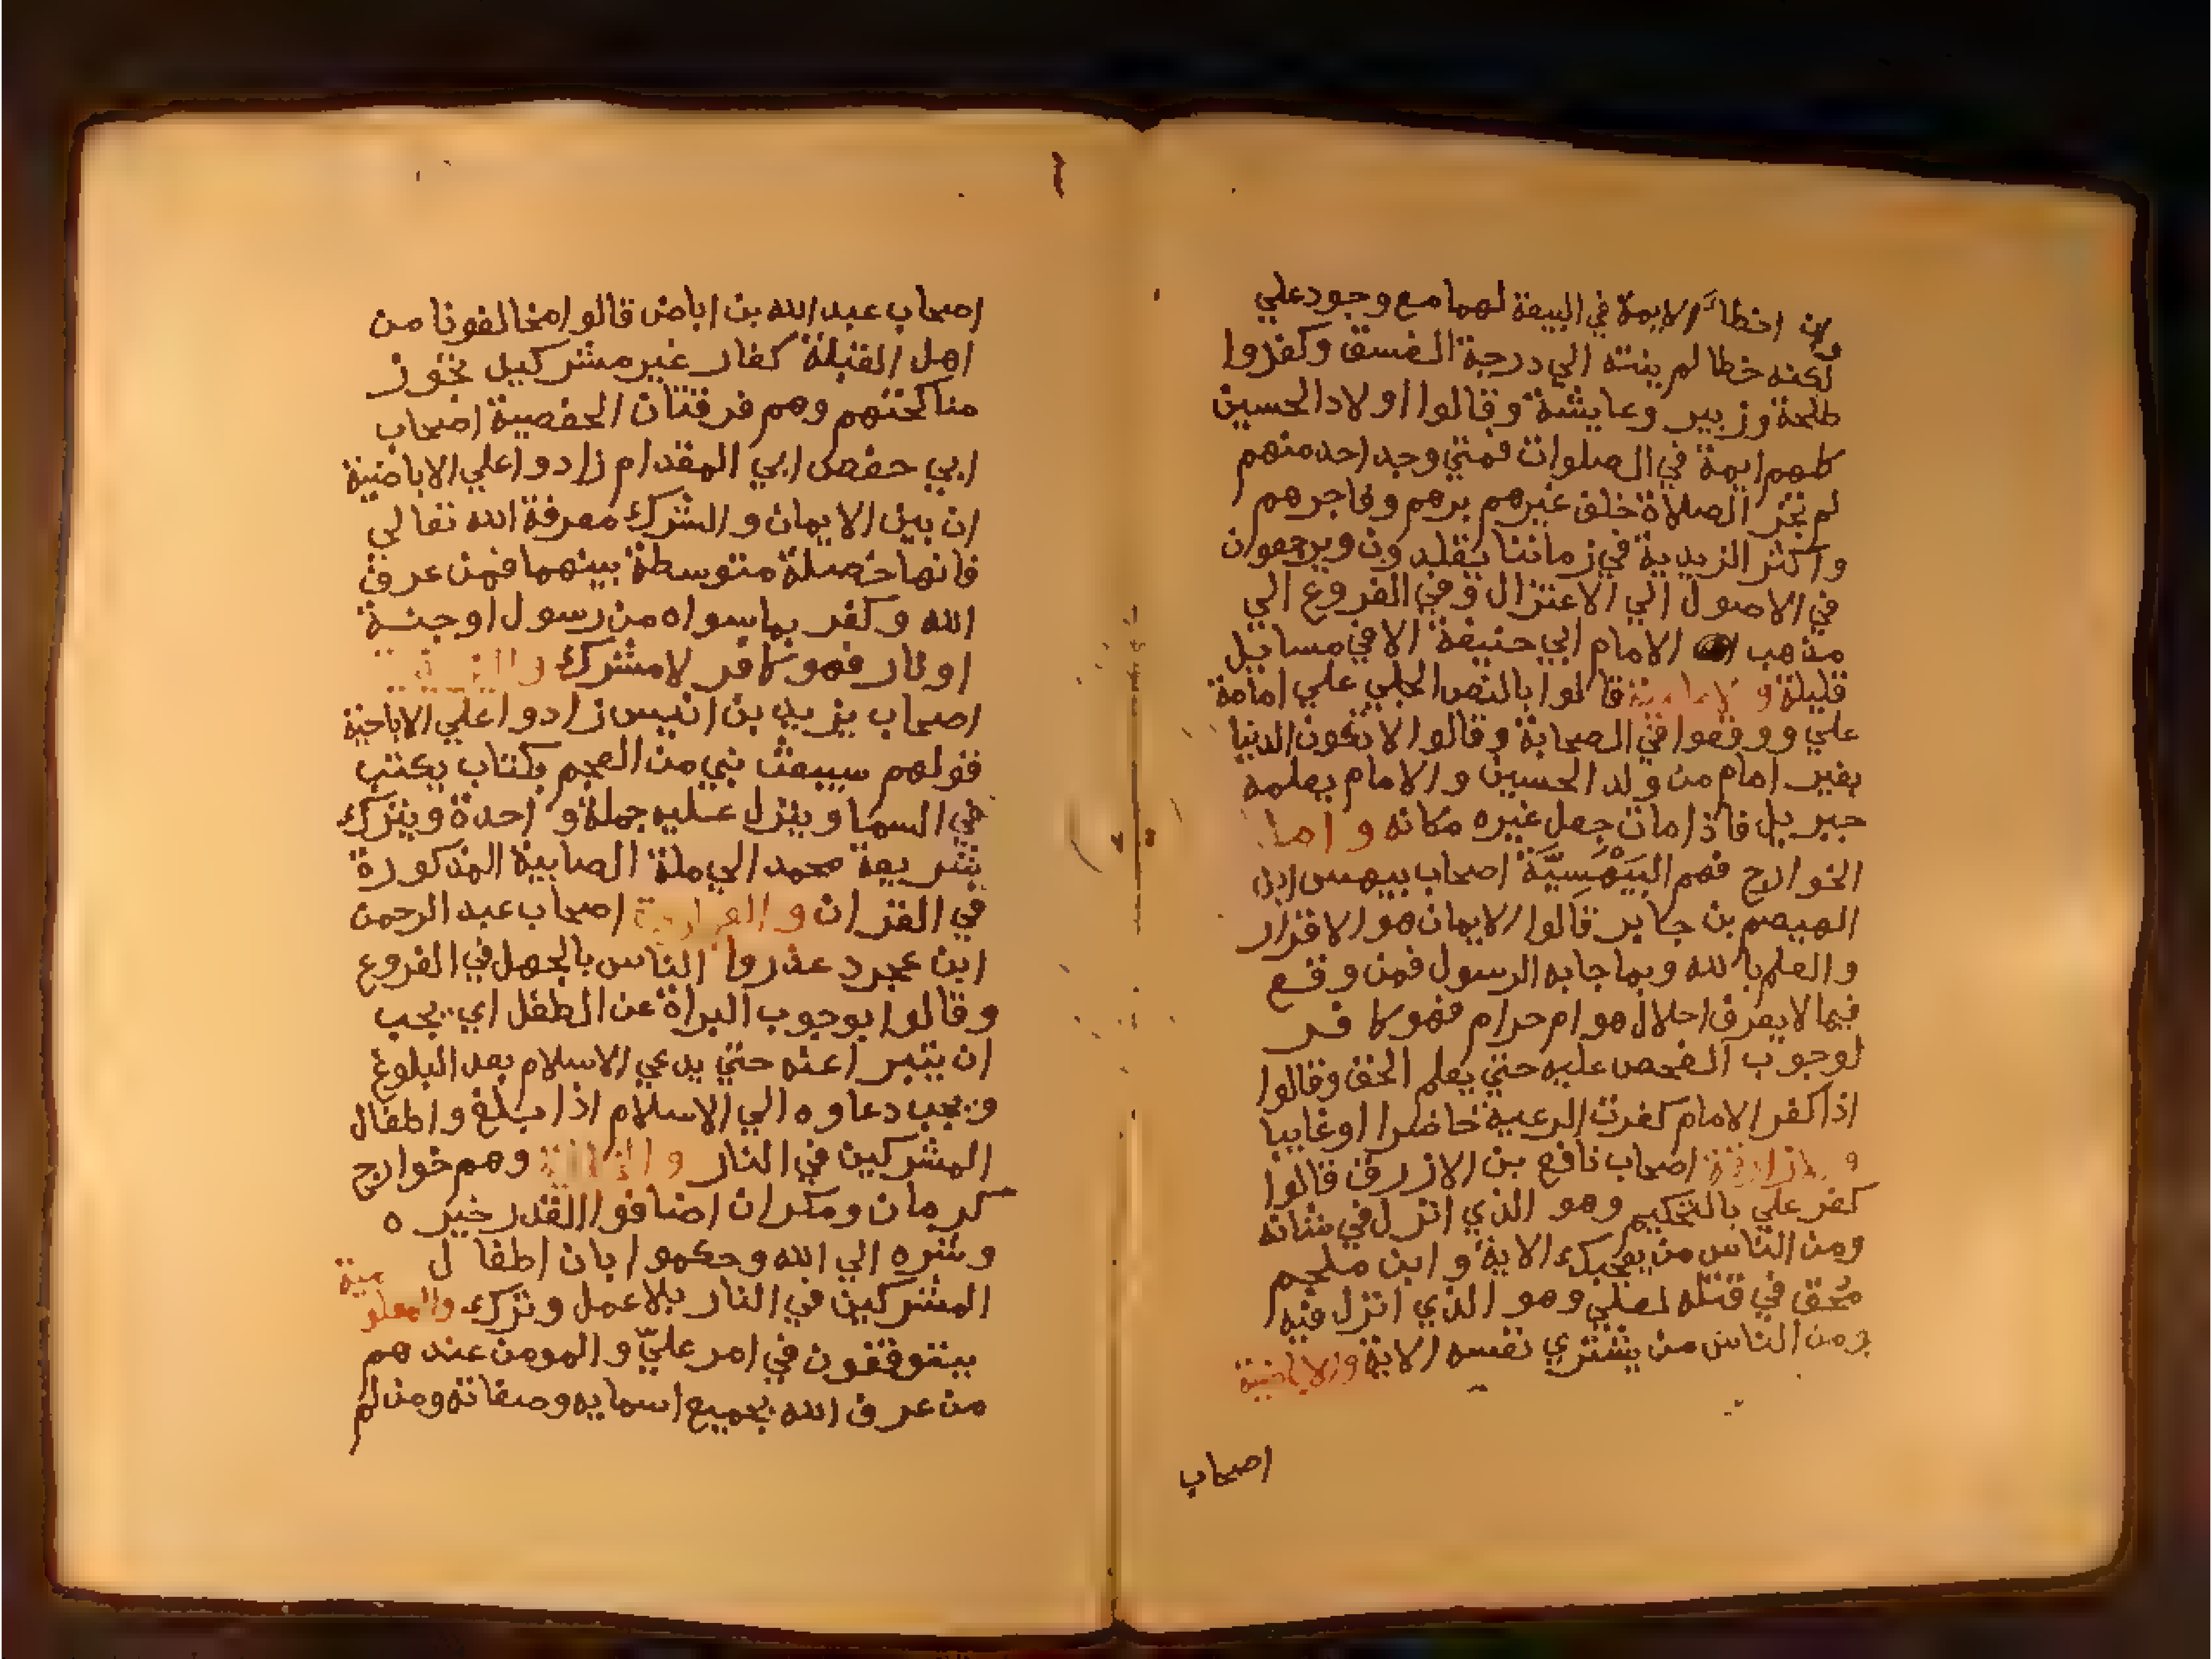 وان اخطات الايمة في البيعة لهما مع وجود علي
لكنه خطا لم ينته الي درجة الفسق وكفروا
طلحة وزبير وعايشة وقالوا اولاد الحسين
كلهم ايمة في الصلوات فمتي وجد احد منهم
لم تجز الصلاة خلف غيرهم برهم وفاجرهم
واكثر الزيدية في زماننا يقلدون ويرجعون
في الاصول الي الاعتزال وفي الفروع الي
مذهب الامام ابي حنيفة الا في مسايل
قليلة والامامية قالوا بالنص الجلي علي امامة
علي ووقعوا في الصحابة وقالوا لا تكون الدنيا
بغير امام من ولد الحسين والامام يعلمه
جبريل فاذا مات جعل غيره مكانه واما
الخوارج فهم البَيْهَسِيَّة اصحاب بيهس ابن
الهيصم بن جابر قالوا الايمان هو الاقرار
والعلم بالله وبما جا به الرسول فمن وقع
فيما لا يعرف احلال هو ام حرام فهو كافر
لوجوب الفحص عليه حتي يعلم الحق وقالوا
اذا كفر الامام كفرت الرعية حاضرا او غايبا
والازارقة اصحاب نافع بن الازرق قالوا
كفر علي بالتحكيم وهو الذي انزل في شانه
ومن الناس من يعجبك الاية وابن ملجم
مُحق في قتله لعلي وهو الذي انزل فيه
ومن الناس من يشتري نفسه الاية والاباضية
اصحاب
اصحاب عبد الله بن اباض قالوا مخالفونا من
اهل القبلة كفار غير مشركين تجوز
مناكحتهم وهم فرقتان الحفصية اصحاب
ابي حفص ابي المقدام زادوا علي الاباضية
ان بين الايمان والشرك معرفة الله تعالي
فانها خصلة متوسطة بينهما فمن عرف
الله وكفر بما سواه من رسول او جنة
او نار فهو كافر لا مشرك
اصحاب يزيد بن انيس زادوا علي الاباضية
قولهم سيبعث نبي من العجم بكتاب يكتب
في السما وينزل عليه جملة واحدة ويترك
شريعة محمد الي ملة الصابية المذكورة
في القران والعجاردة اصحاب عبد الرحمن
ابن عجرد عذروا الناس بالجهل في الفروع
وقالوا بوجوب البراة عن الطفل اي يجب
ان يتبرا عنه حتي يدعي الاسلام بعد البلوغ
ويجب دعاوه الي الاسلام اذا بلغ واطفال
المشركين في النار وهم خوارج
كرمان ومكران اضافوا القدر خيره
وشره الي الله وحكموا بان اطفال
المشركين في النار بلا عمل وترك والمعلومية
يتوقفون في امر عليّ والمومن عندهم
من عرف الله بجميع اسمايه وصفاته ومن لم